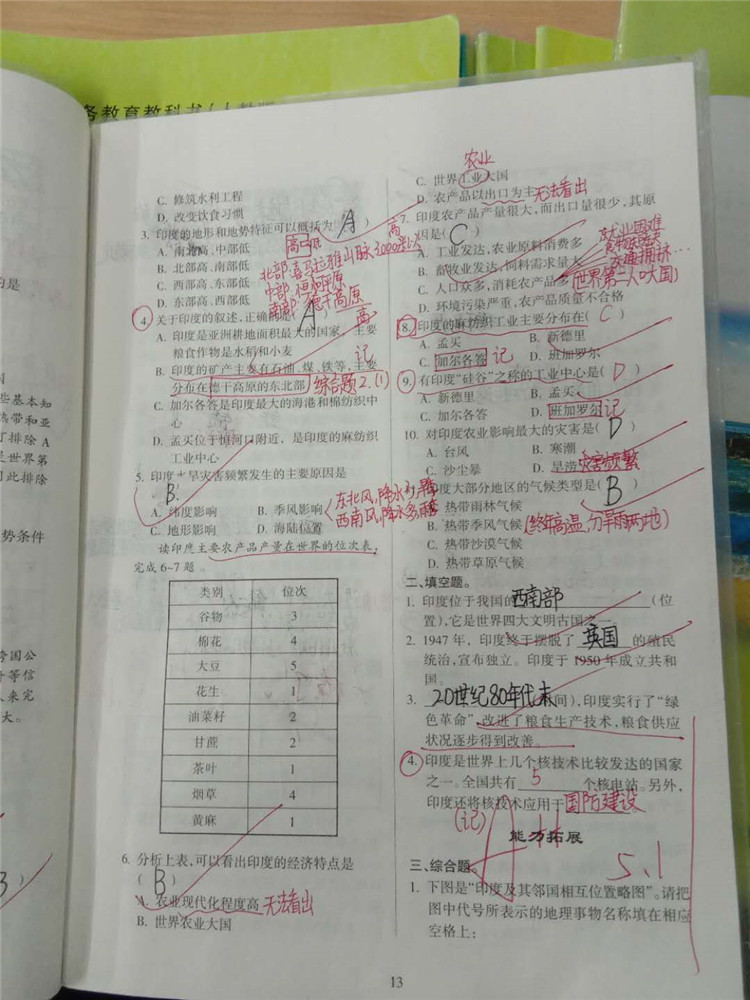 务教育教科书
C. 修筑水利工程
D. 改变饮食习惯
3. 印度的地形和地势特征可以概括为( A )
A. 南北高、中部低
B. 北部高、南部低
C. 西部高、东部低
D. 东部高、西部低
高 低
高
北部:喜马拉雅山脉 3000米以
中部:恒河平原
南部:德干高原
高
4. 关于印度的叙述,正确的是( A )
A. 印度是亚洲耕地面积最大的国家,主要
粮食作物是水稻和小麦
B. 印度的矿产主要有石油、煤、铁等,主要
记
分布在德干高原的东北部 综合题2.(1)
C. 加尔各答是印度最大的海港和棉纺织中
心
D. 孟买位于恒河口附近,是印度的麻纺织
工业中心
5. 印度水旱灾害频繁发生的主要原因是
( B )
A. 纬度影响 B. 季风影响
C. 地形影响 D. 海陆位置
东北风,降水少,旱
西南风,降水多,
读印度主要农产品产量在世界的位次表,
完成6~7题。
类别 位次
谷物 3
棉花 4
大豆 5
花生 1
油菜籽 2
甘蔗 2
茶叶 1
烟草 4
黄麻 1
6. 分析上表,可以看出印度的经济特点是
( B )
A. 农业现代化程度高 无法看出
B. 世界农业大国
农业
C. 世界工业大国
D. 农产品以出口为主 无法看出
7. 印度农产品产量很大,而出口量很少,其原
因是( C )
A. 工业发达,农业原料消费多
B. 畜牧业发达,饲料需求量大
C. 人口众多,消耗农产品多
D. 环境污染严重,农产品质量不合格
就业困难
交通拥挤…
(世界第二人口大国)
8. 印度的麻纺织工业主要分布在( C )
A. 孟买 B. 新德里
C. 加尔各答 记 D. 班加罗尔
9. 有印度“硅谷”之称的工业中心是( D )
A. 新德里 B. 孟买
C. 加尔各答 D. 班加罗尔 记
10. 对印度农业影响最大的灾害是( D )
A. 台风 B. 寒潮
C. 沙尘暴 D. 旱涝 灾害频繁
印度大部分地区的气候类型是( B )
A. 热带雨林气候
B. 热带季风气候 (终年高温,分旱雨两季)
C. 热带沙漠气候
D. 热带草原气候
二、填空题。
1. 印度位于我国的 西南部 (位
置),它是世界四大文明古国之一。
2. 1947年,印度终于摆脱了 英国 的殖民
统治,宣布独立。印度于1950年成立共和
国。
3. 20世纪80年代末 间),印度实行了“绿
色革命”,改进了粮食生产技术,粮食供应
状况逐步得到改善。
4. 印度是世界上几个核技术比较发达的国家
之一。全国共有 5 个核电站。另外,
印度还将核技术应用于 国防建设
(记)
A++
能力拓展
5.1
三、综合题。
1. 下图是“印度及其邻国相互位置略图”。请把
图中代号所表示的地理事物名称填在相应
空格上:
13